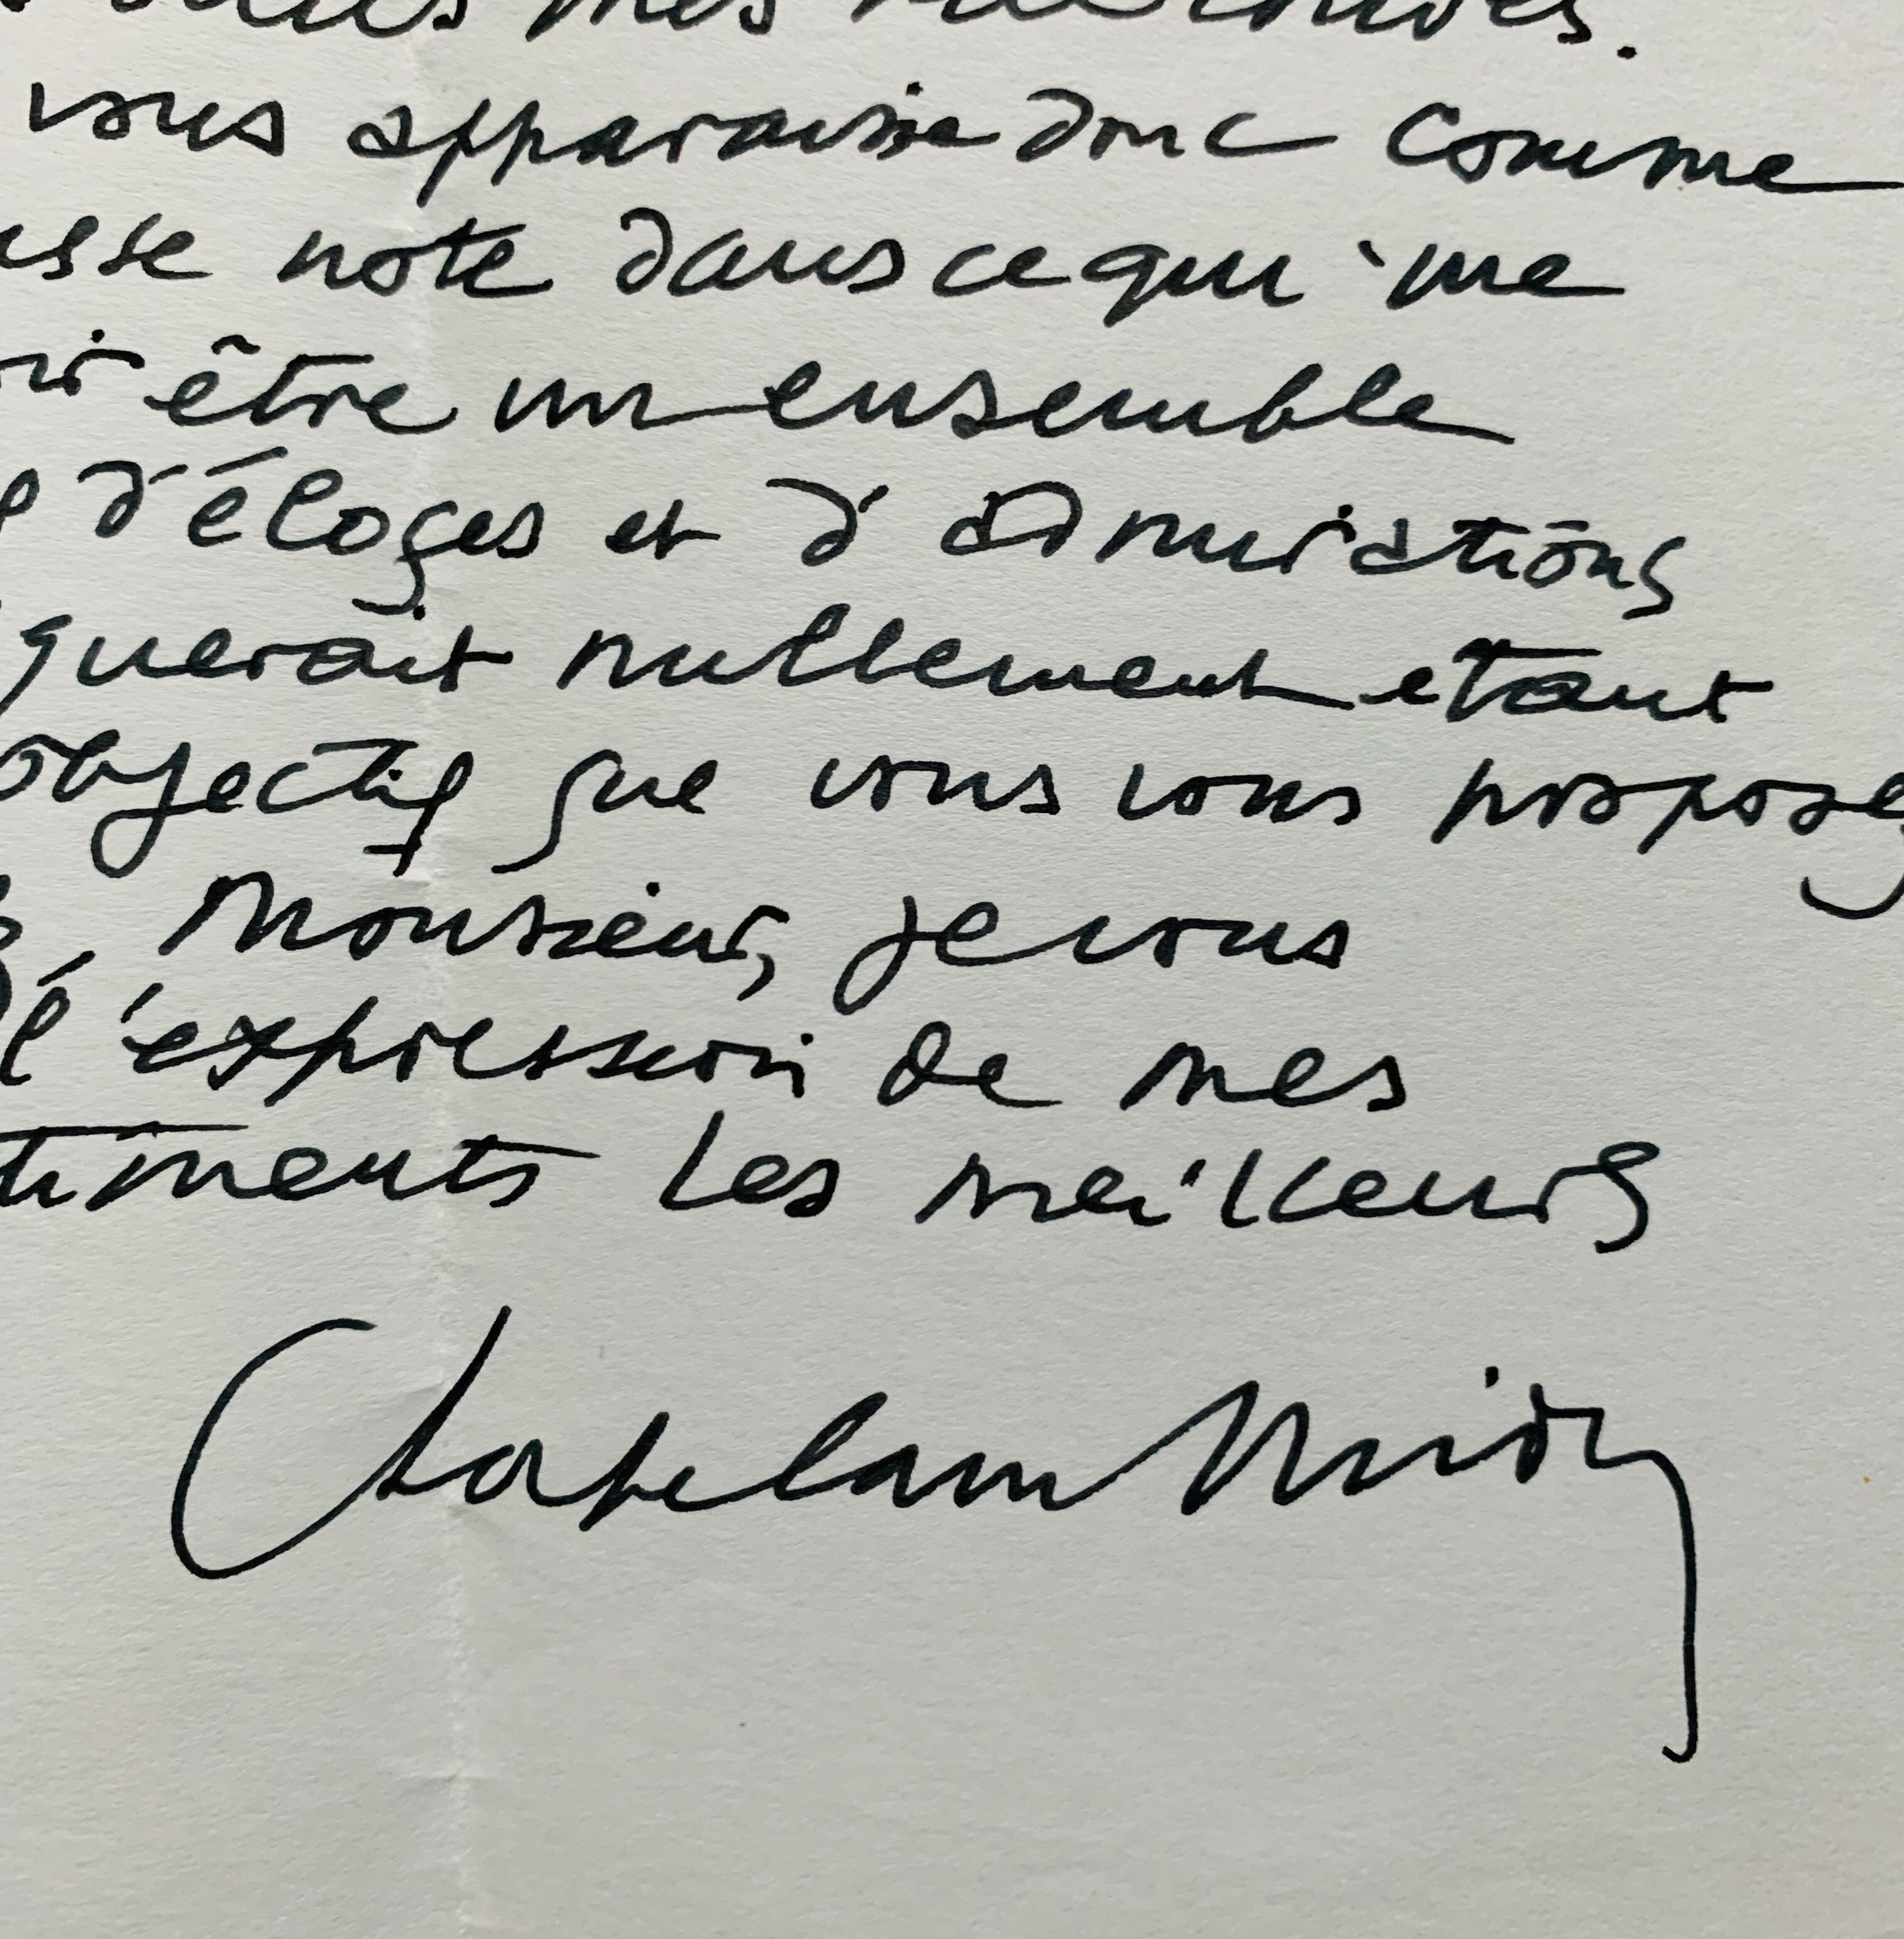 mes
vous apparaisse donc comme
usse note dans ce qui me
être un ensemble
d'éloges et d'admirations
querait nullement etant
objectif que vous vous proposez
Monsieur, je vous
l'expression de mes
timents les meilleurs
Chapelain Midy